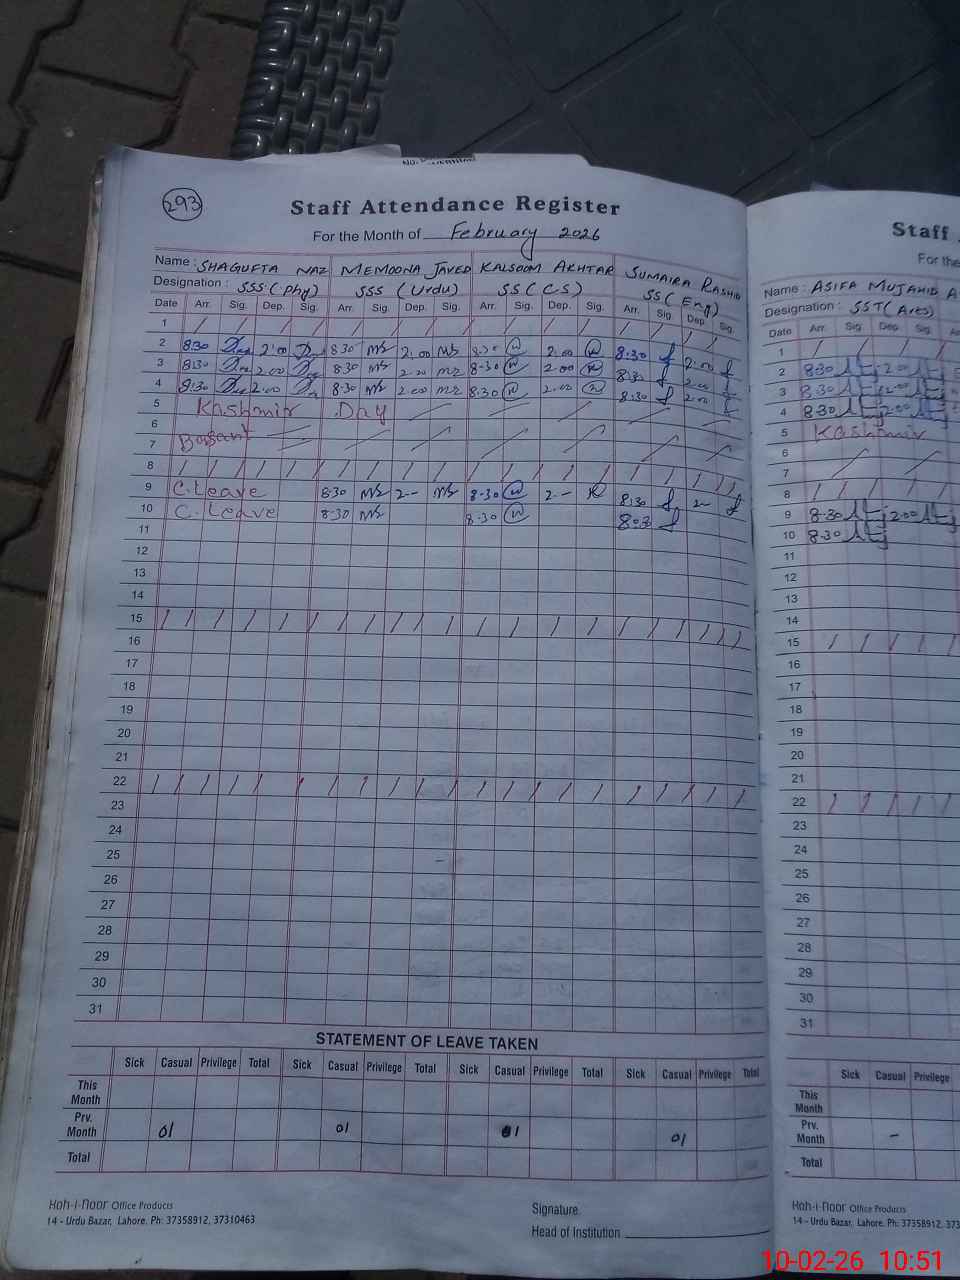 293
Staff Attendance Register
For the Month of February 2026
Name : SHAGUFTA NAZ MEMOONA JAVED KALSOOM AKHTAR SUMAIRA RASHID
Designation : SSS (Phy) SSS (Urdu) SS (CS) SS (Eng)
Date Arr. Sig. Dep. Sig. Arr. Sig. Dep. Sig. Arr. Sig. Dep. Sig. Arr. Sig. Dep. Sig.
1
2 8:30 2:00 8:30 2:00 8:30 2:00 8:30 2:00
3 8:30 2:00 8:30 2:00 8:30 2:00 8:30 2:00
4 8:30 2:00 8:30 2:00 8:30 2:00 8:30 2:00
5 Kashmir Day
6
7 Basant
8
9 C. Leave 8:30 2- 8:30 2- 8:30 2-
10 C. Leave 8:30 8:30
11
12
13
14
15
16
17
18
19
20
21
22
23
24
25
26
27
28
29
30
31
STATEMENT OF LEAVE TAKEN
Sick Casual Privilege Total Sick Casual Privilege Total Sick Casual Privilege Total Sick Casual Privilege Total
This Month
Prv. Month 01 01 01 01
Total
Koh-i-Noor Office Products
14 - Urdu Bazar, Lahore. Ph: 37358912, 37310463
Signature
Head of Institution
Staff
For the
Name : ASIFA MUJAHID
Designation : SST (Arts)
Date Arr. Sig. Dep. Sig.
1
2 8:30 2:00
3 8:30 2:00
4 8:30 2:00
5 Kashmir
6
7
8
9 8:30 2:00
10 8:30
11
12
13
14
15
16
17
18
19
20
21
22
23
24
25
26
27
28
29
30
31
Sick Casual Privilege
This Month
Prv. Month -
Total
Koh-i-Noor Office Products
14 - Urdu Bazar, Lahore. Ph: 37358912,
10-02-26 10:51